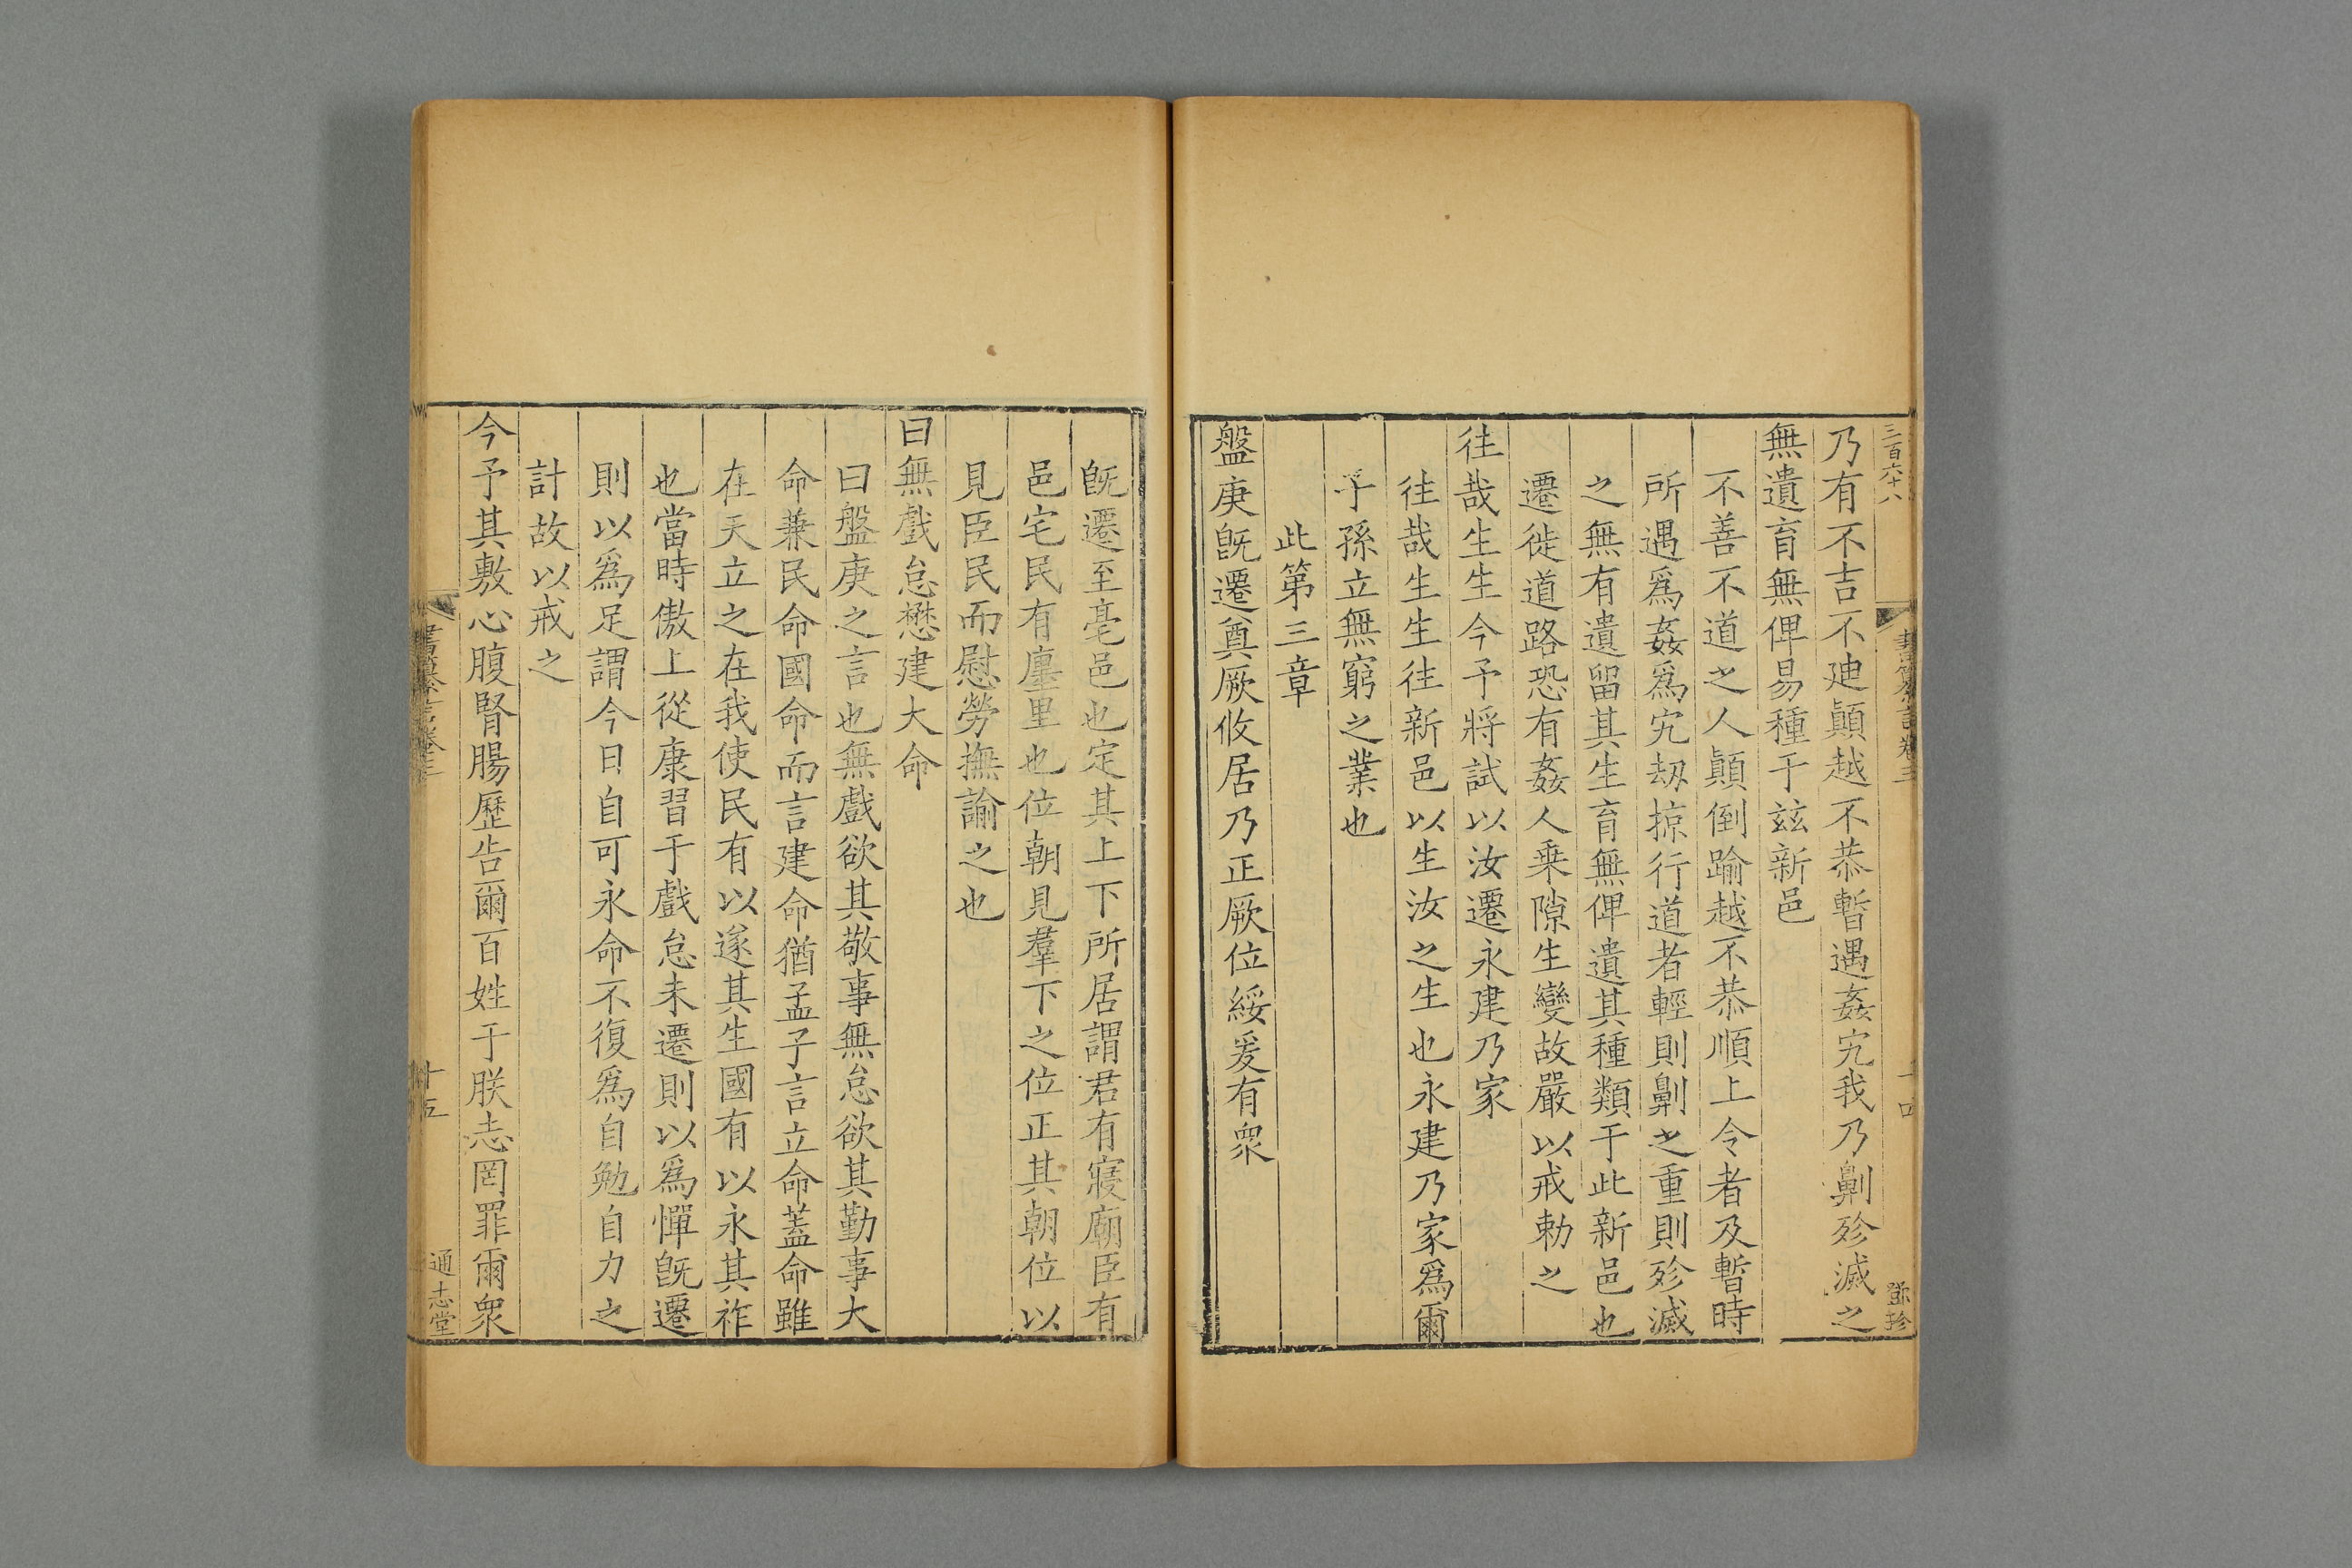 三百六十八
書纂言卷三
十四
鄧珍
乃有不吉不迪顚越不恭暫遇姦宄我乃劓殄滅之
無遺育無俾易種于玆新邑
不善不道之人顚倒踰越不恭順上令者及暫時
所遇爲姦爲宄刼掠行道者輕則劓之重則殄滅
之無有遺留其生育無俾遺其種類于此新邑也
遷徙道路恐有姦人乗隙生變故嚴以戒勅之
往哉生生今予將試以汝遷永建乃家
徃哉生生往新邑以生汝之生也永建乃家爲爾
子孫立無窮之業也
此第三章
盤庚旣遷奠厥攸居乃正厥位綏爰有衆
旣遷至亳邑也定其上下所居謂君有寢廟臣有
邑宅民有廛里也位朝見羣下之位正其朝位以
見臣民而慰勞撫諭之也
曰無戲怠懋建大命
曰盤庚之言也無戲欲其敬事無怠欲其勤事大
命兼民命國命而言建命猶孟子言立命蓋命雖
在天立之在我使民有以遂其生國有以永其祚
也當時傲上從康習于戲怠未遷則以爲憚旣遷
則以爲足謂今日自可永命不復爲自勉自力之
計故以戒之
今予其敷心腹腎腸歷告爾百姓于朕志罔罪爾衆
書纂言卷三
十五
通志堂